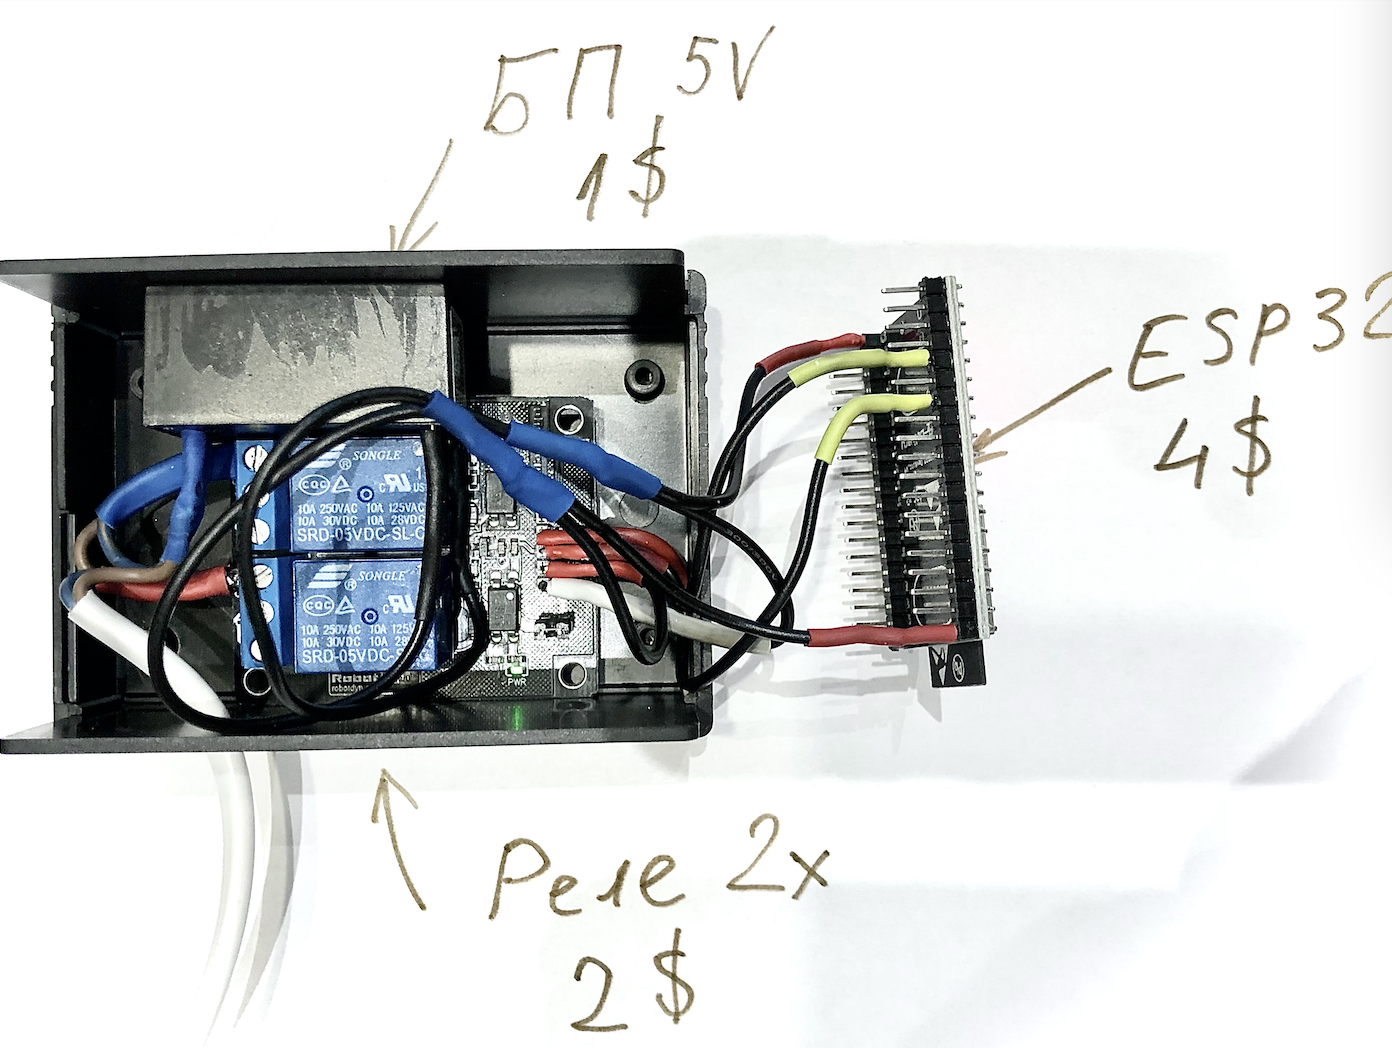 БП 5V
1$
ESP32
4$
SONGLE
®
CQC c US
10A 250VAC 10A 125VAC
10A 30VDC 10A 28VDC
SRD-05VDC-SL-C
SONGLE
®
CQC c
10A 250VAC 10A 125V
10A 30VDC 10A 28
SRD-05VDC-S
PWR
Реле 2x
2$